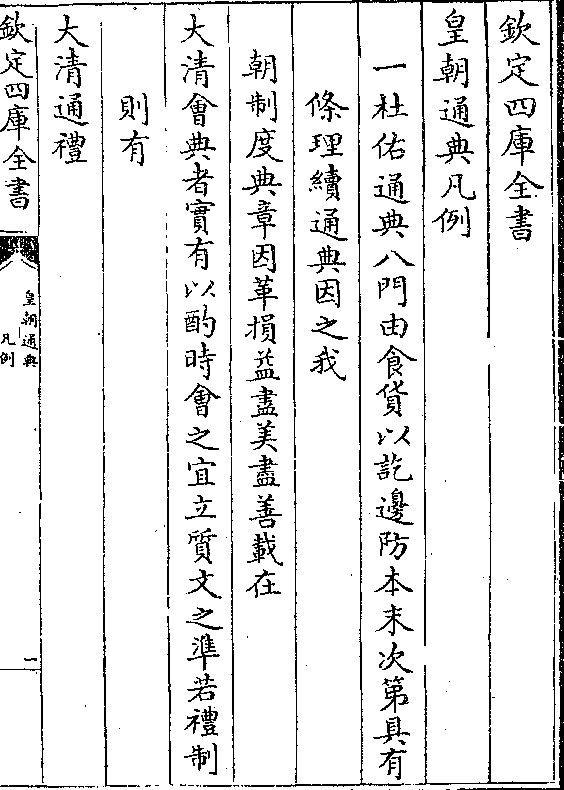 欽定四庫全書
皇朝通典凡例
一杜佑通典八門由食貨以訖邊防本末次第具有
條理續通典因之我
朝制度典章因革損益盡美盡善載在
大清會典者實有以酌時會之宜立質文之準若禮制
則有
大清通禮
欽定四庫全書
皇朝通典
凡例
一